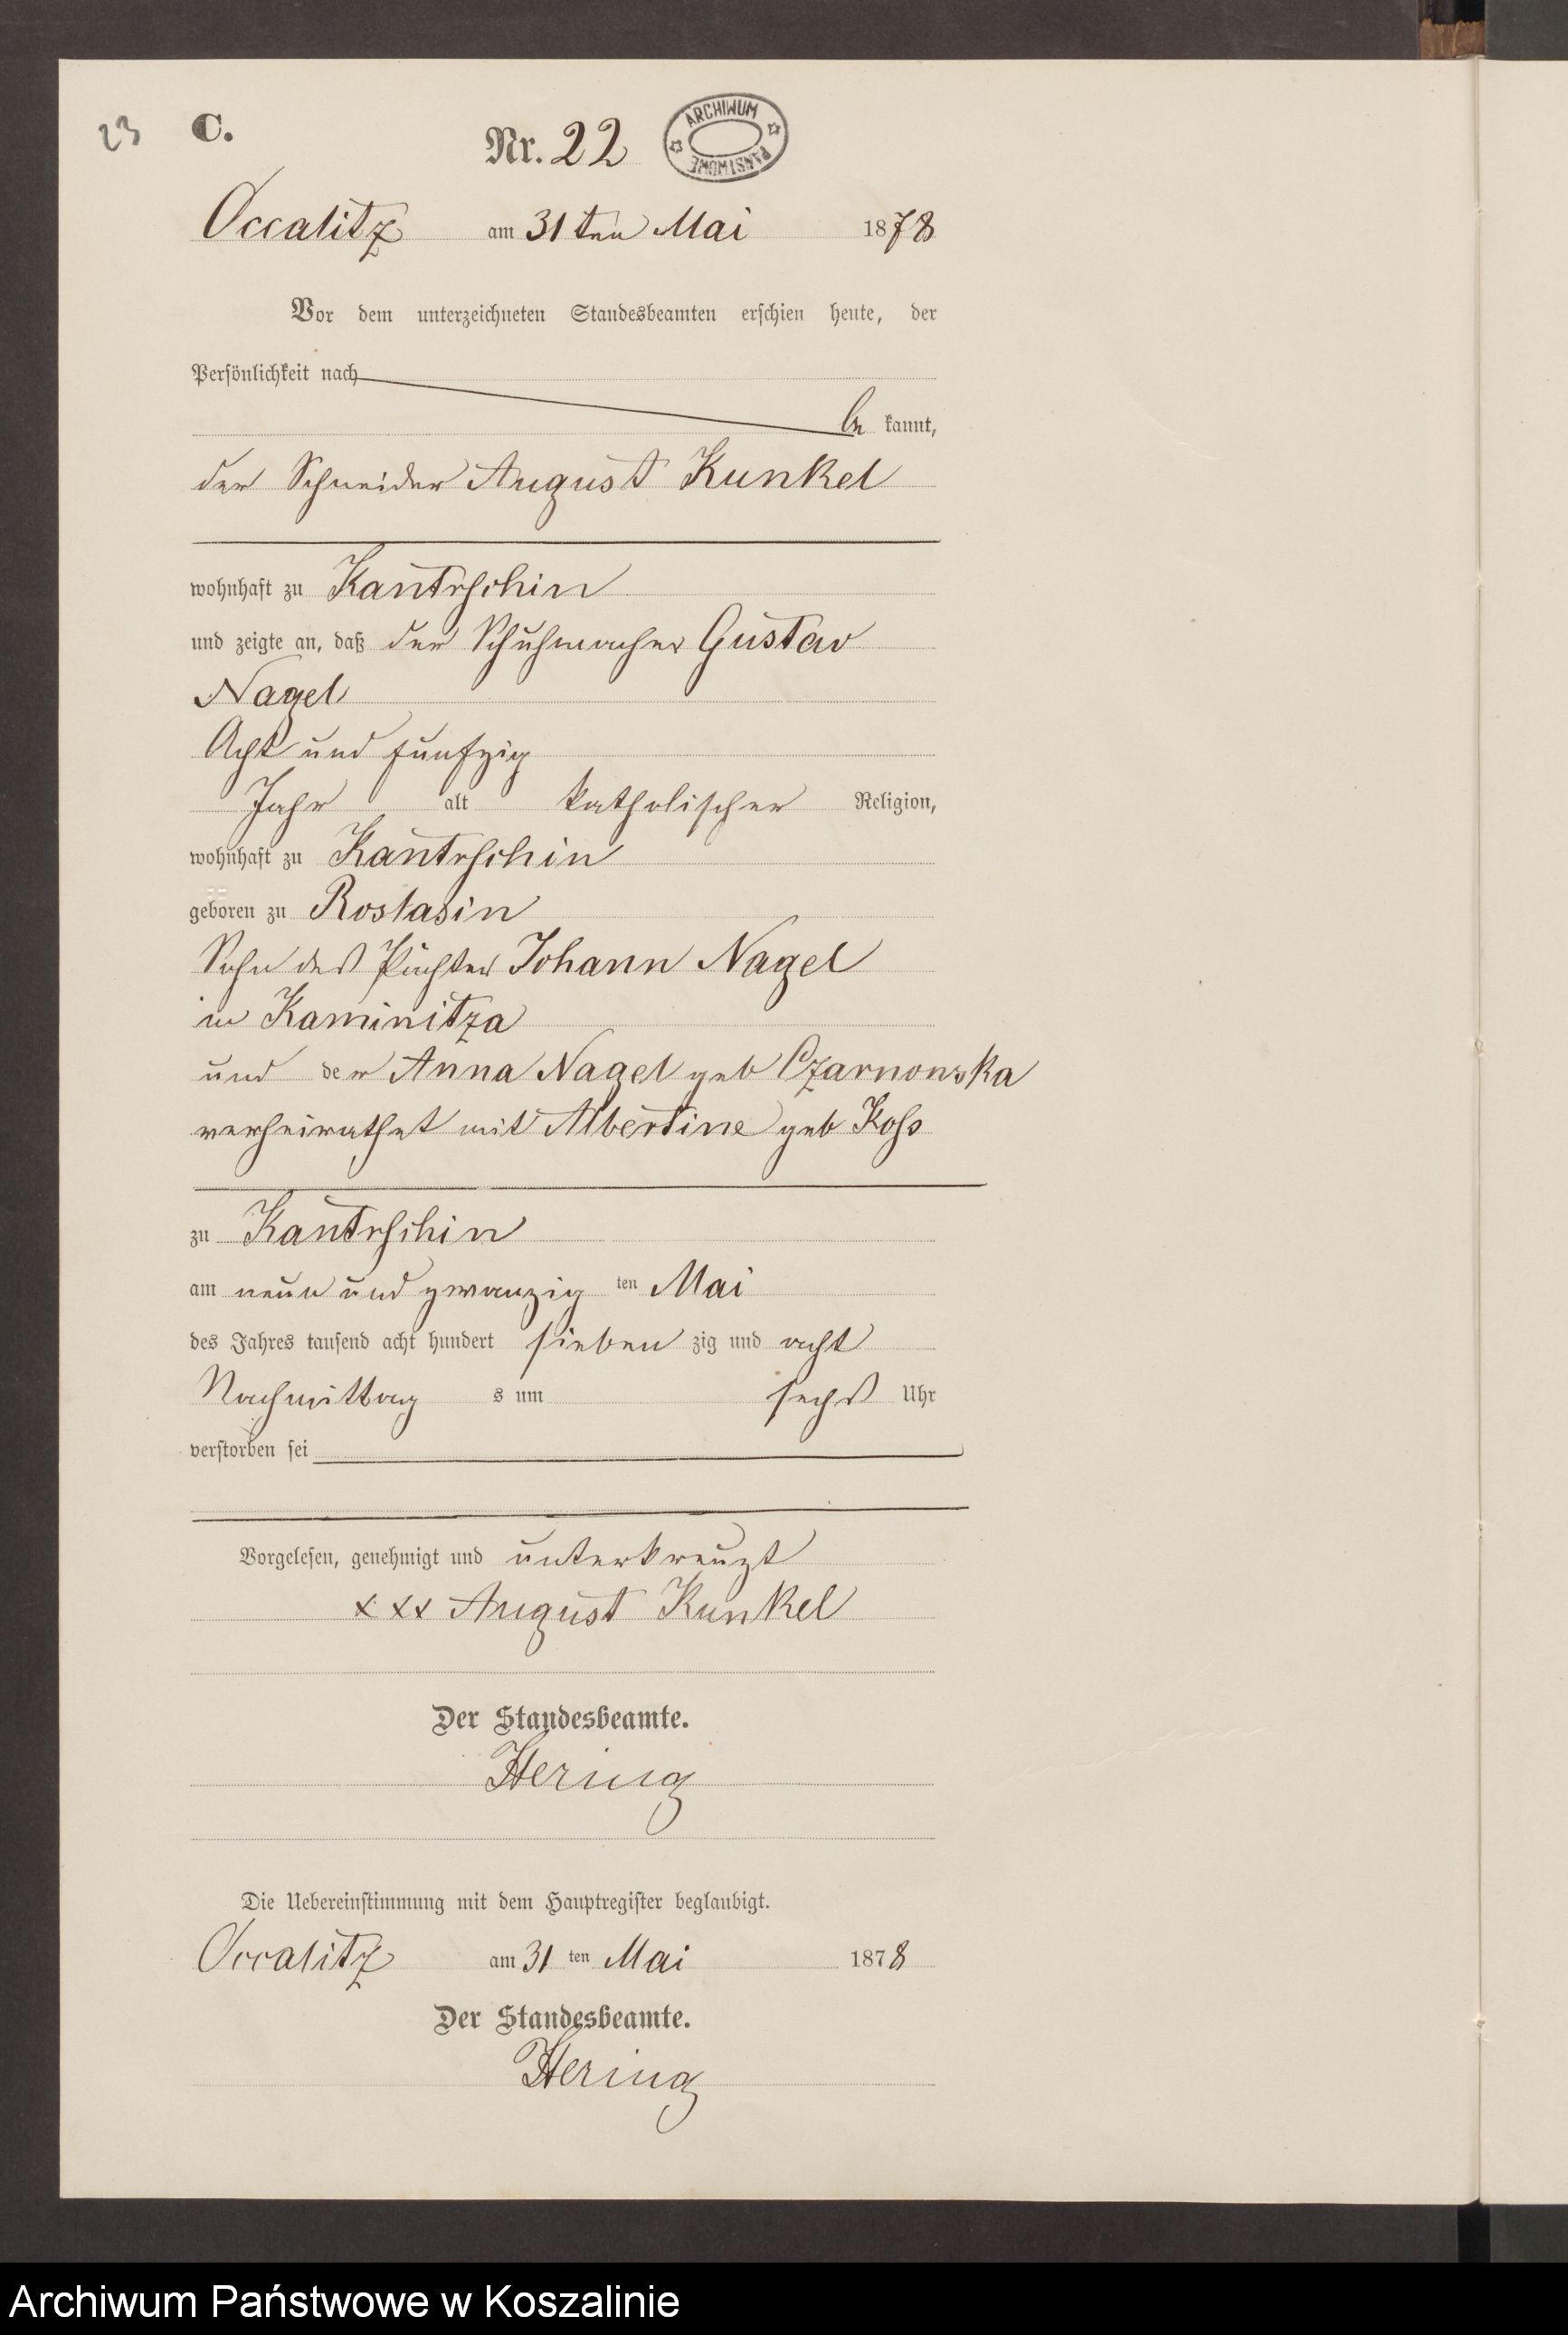 23 C.
Nr. 22
ARCHIWUM PAŃSTWOWE
Occalitz am 31ten Mai 1878
Vor dem unterzeichneten Standesbeamten erschien heute, der
Persönlichkeit nach
be kannt,
der Schneider August Kunkel
wohnhaft zu Kantrschin
und zeigte an, daß der Schuhmacher Gustav
Nagel
Acht und funfzig
Jahr alt katholischer Religion,
wohnhaft zu Kantrschin
geboren zu Roslasin
Sohn des Pächter Johann Nagel
in Kaminitza
und der Anna Nagel geb Czarnowska
verheirathet mit Albertine geb Koss
zu Kantrschin
am neun und zwanzig ten Mai
des Jahres tausend acht hundert sieben zig und acht
Nachmittag s um sechs Uhr
verstorben sei
Vorgelesen, genehmigt und unterkreuzt
xxx August Kunkel
Der Standesbeamte.
Hering
Die Uebereinstimmung mit dem Hauptregister beglaubigt.
Occalitz am 31 ten Mai 1878
Der Standesbeamte.
Hering
Archiwum Państwowe w Koszalinie